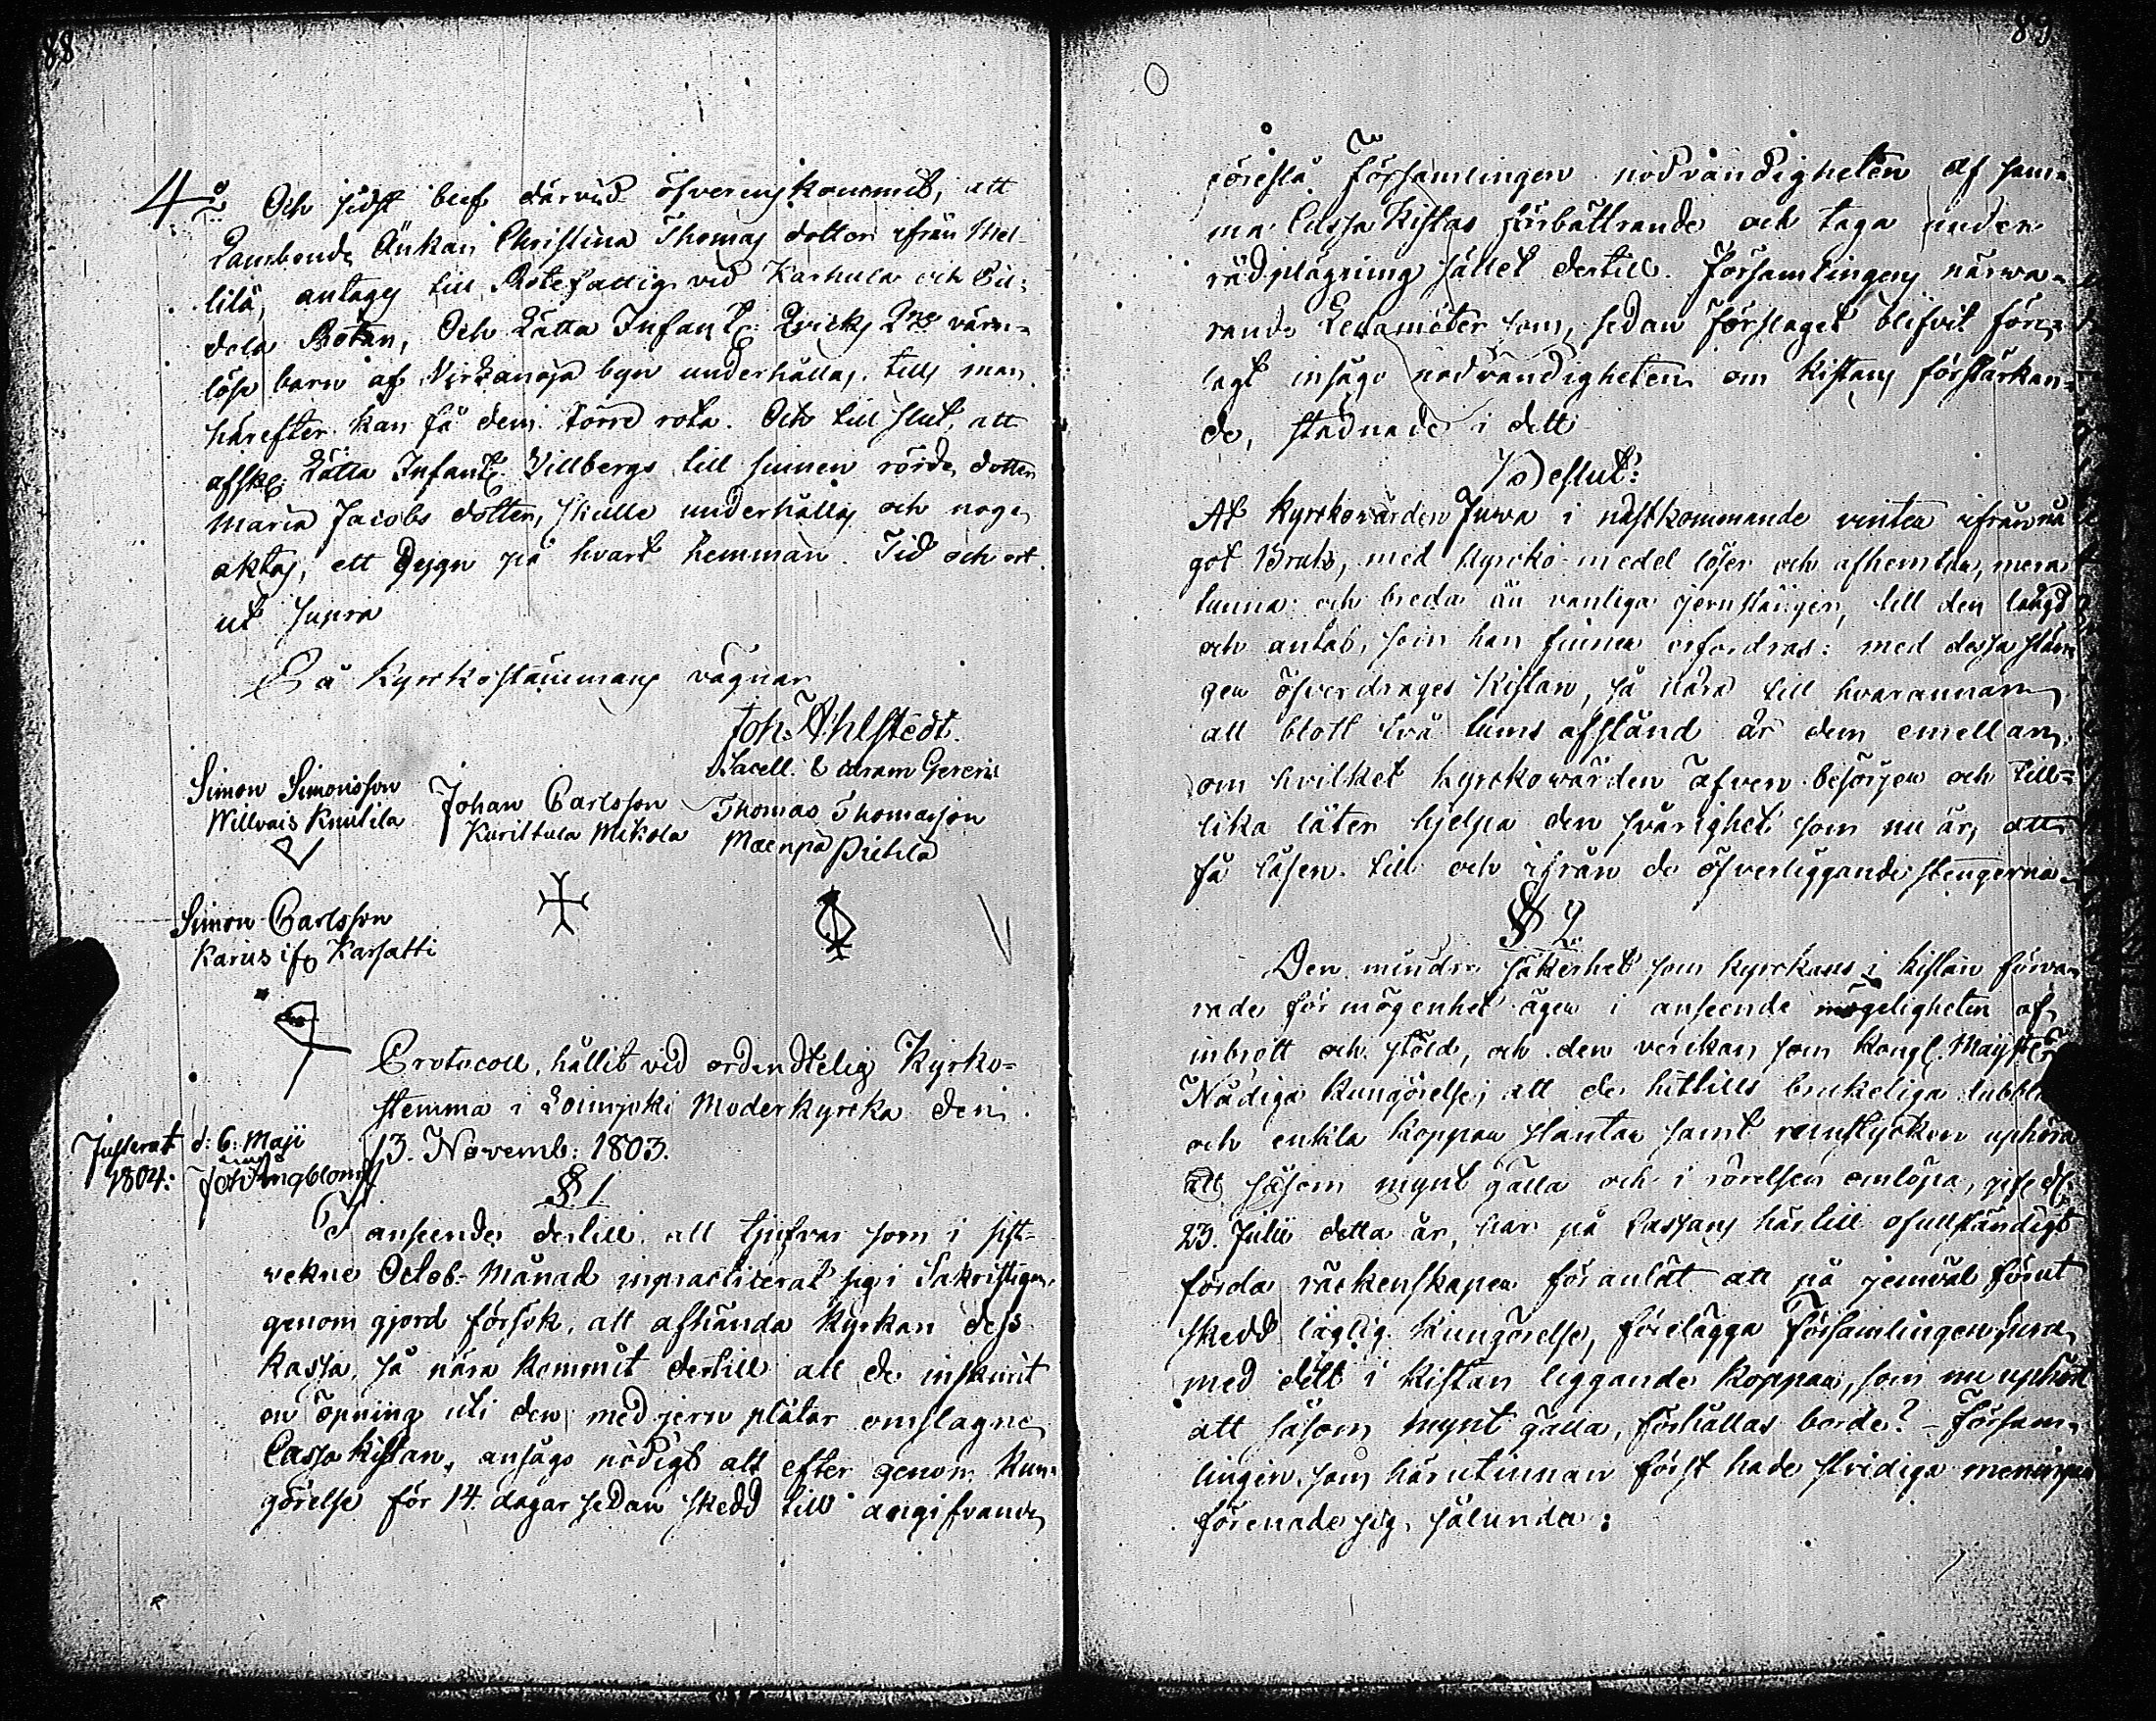 88
4:o Och sidst blef därvid öfverenskommit, att
Lambonde Änkan Christina Thomas dotter ifrån Mel-
lilä, antages till Rotefattig vid Karhula och
dela Rotan, Och Lätta Infant: Qvicks 2ne värn-
löse barn af Virkanoja byn underhållas, tills man
härefter kan få dem större rota. Och till slut, att
afsk: Lätta Infant: Villbergs till sinnen rörde dotter
Maria Jacobs dotter, skulle underhållas och noga
aktas, ett Dygn på hvart hemman. Tid och ort
ut supra
På Kyrkostämmans vägnar
Joh: Ahlstedt.
Sacell. & curam Gerens
Simon Simonsson
Willvais Knutila
Johan Carlsson
Kurittula Mikola
Thomas Thomasson
Mäenpä Pietilä
Simon Carlsson
Karius ifr Karsatti
Protocoll, hållit vid ordendtelig Kyrko-
stemma i Loimjoki Moderkyrcka den
13. Novemb: 1803.
Justerat d: 6: Maji
1804: Joh Ungblom
§ 1
I anseende dertill, att tjufvar som i sist-
vekne Octob: Månad inpracticerat sig i Sakristigan,
genom gjord försök, att afhända Kyrkan dess
kassa, så nära kommit dertill att de inskurit
en öpning uti den med jern plåtar omslagne
Cassa kistan, ansågs nödigt att efter genom kun-
görelse för 14 dagar sedan skedd till angifvande
89
föreslå Församlingen nödvändigheten af sam-
ma Cassa Kistas förbättrande och taga under
rådplägning sättet dertill. Församlingens närva-
rande Ledamöter som, sedan förslaget blifvit före-
lagt insågo nödvändigheten om kistans förstärkan-
de, stadnade i dett
Beslut:
At Kyrckovärden Juva i nästkommande vinter ifrån nå
got Bruk, med Kyrcko-medel löser och afhemtar, mera
tunna och breda än vanliga jernstänger, till den längd
och antal, som han finner erfordras: med dessa stän
gen öfverdrages Kistan, så nära till hvarannan
att blott två tums afstånd är dem emellan,
om hvilket kyrckovärden äfven besörjer och till-
lika låter hjelpa den svårighet som nu är, att
få låsen till och ifrån de öfverliggande stengerna.
§ 2.
Den mindre säkerhet som kyrckans i kistan förva-
rade förmögenhet äger i anseende mögeligheten af
inbrott och stöld, och den verkan som Kongl. Majsts
Nådiga kungörelse, att de hittills brukeliga dubbla
och enkla koppar slantar samt runstycken uphöra
att såsom mynt gälla och i rörelsen omlöpa, gifv. d.
23. Julii detta år, har på Cassans härtill ofullständigt
förda räckenskaper föranlåt att på jemväl förut
skedd laglig kungörelse, förelägga Församlingen huru
med dett i Kistan liggande koppar, som nu uphört
att såsom mynt gälla, förhållas borde? - Försam-
lingen, som härutinnan först hade stridiga meningar
förenade sig sålunda: